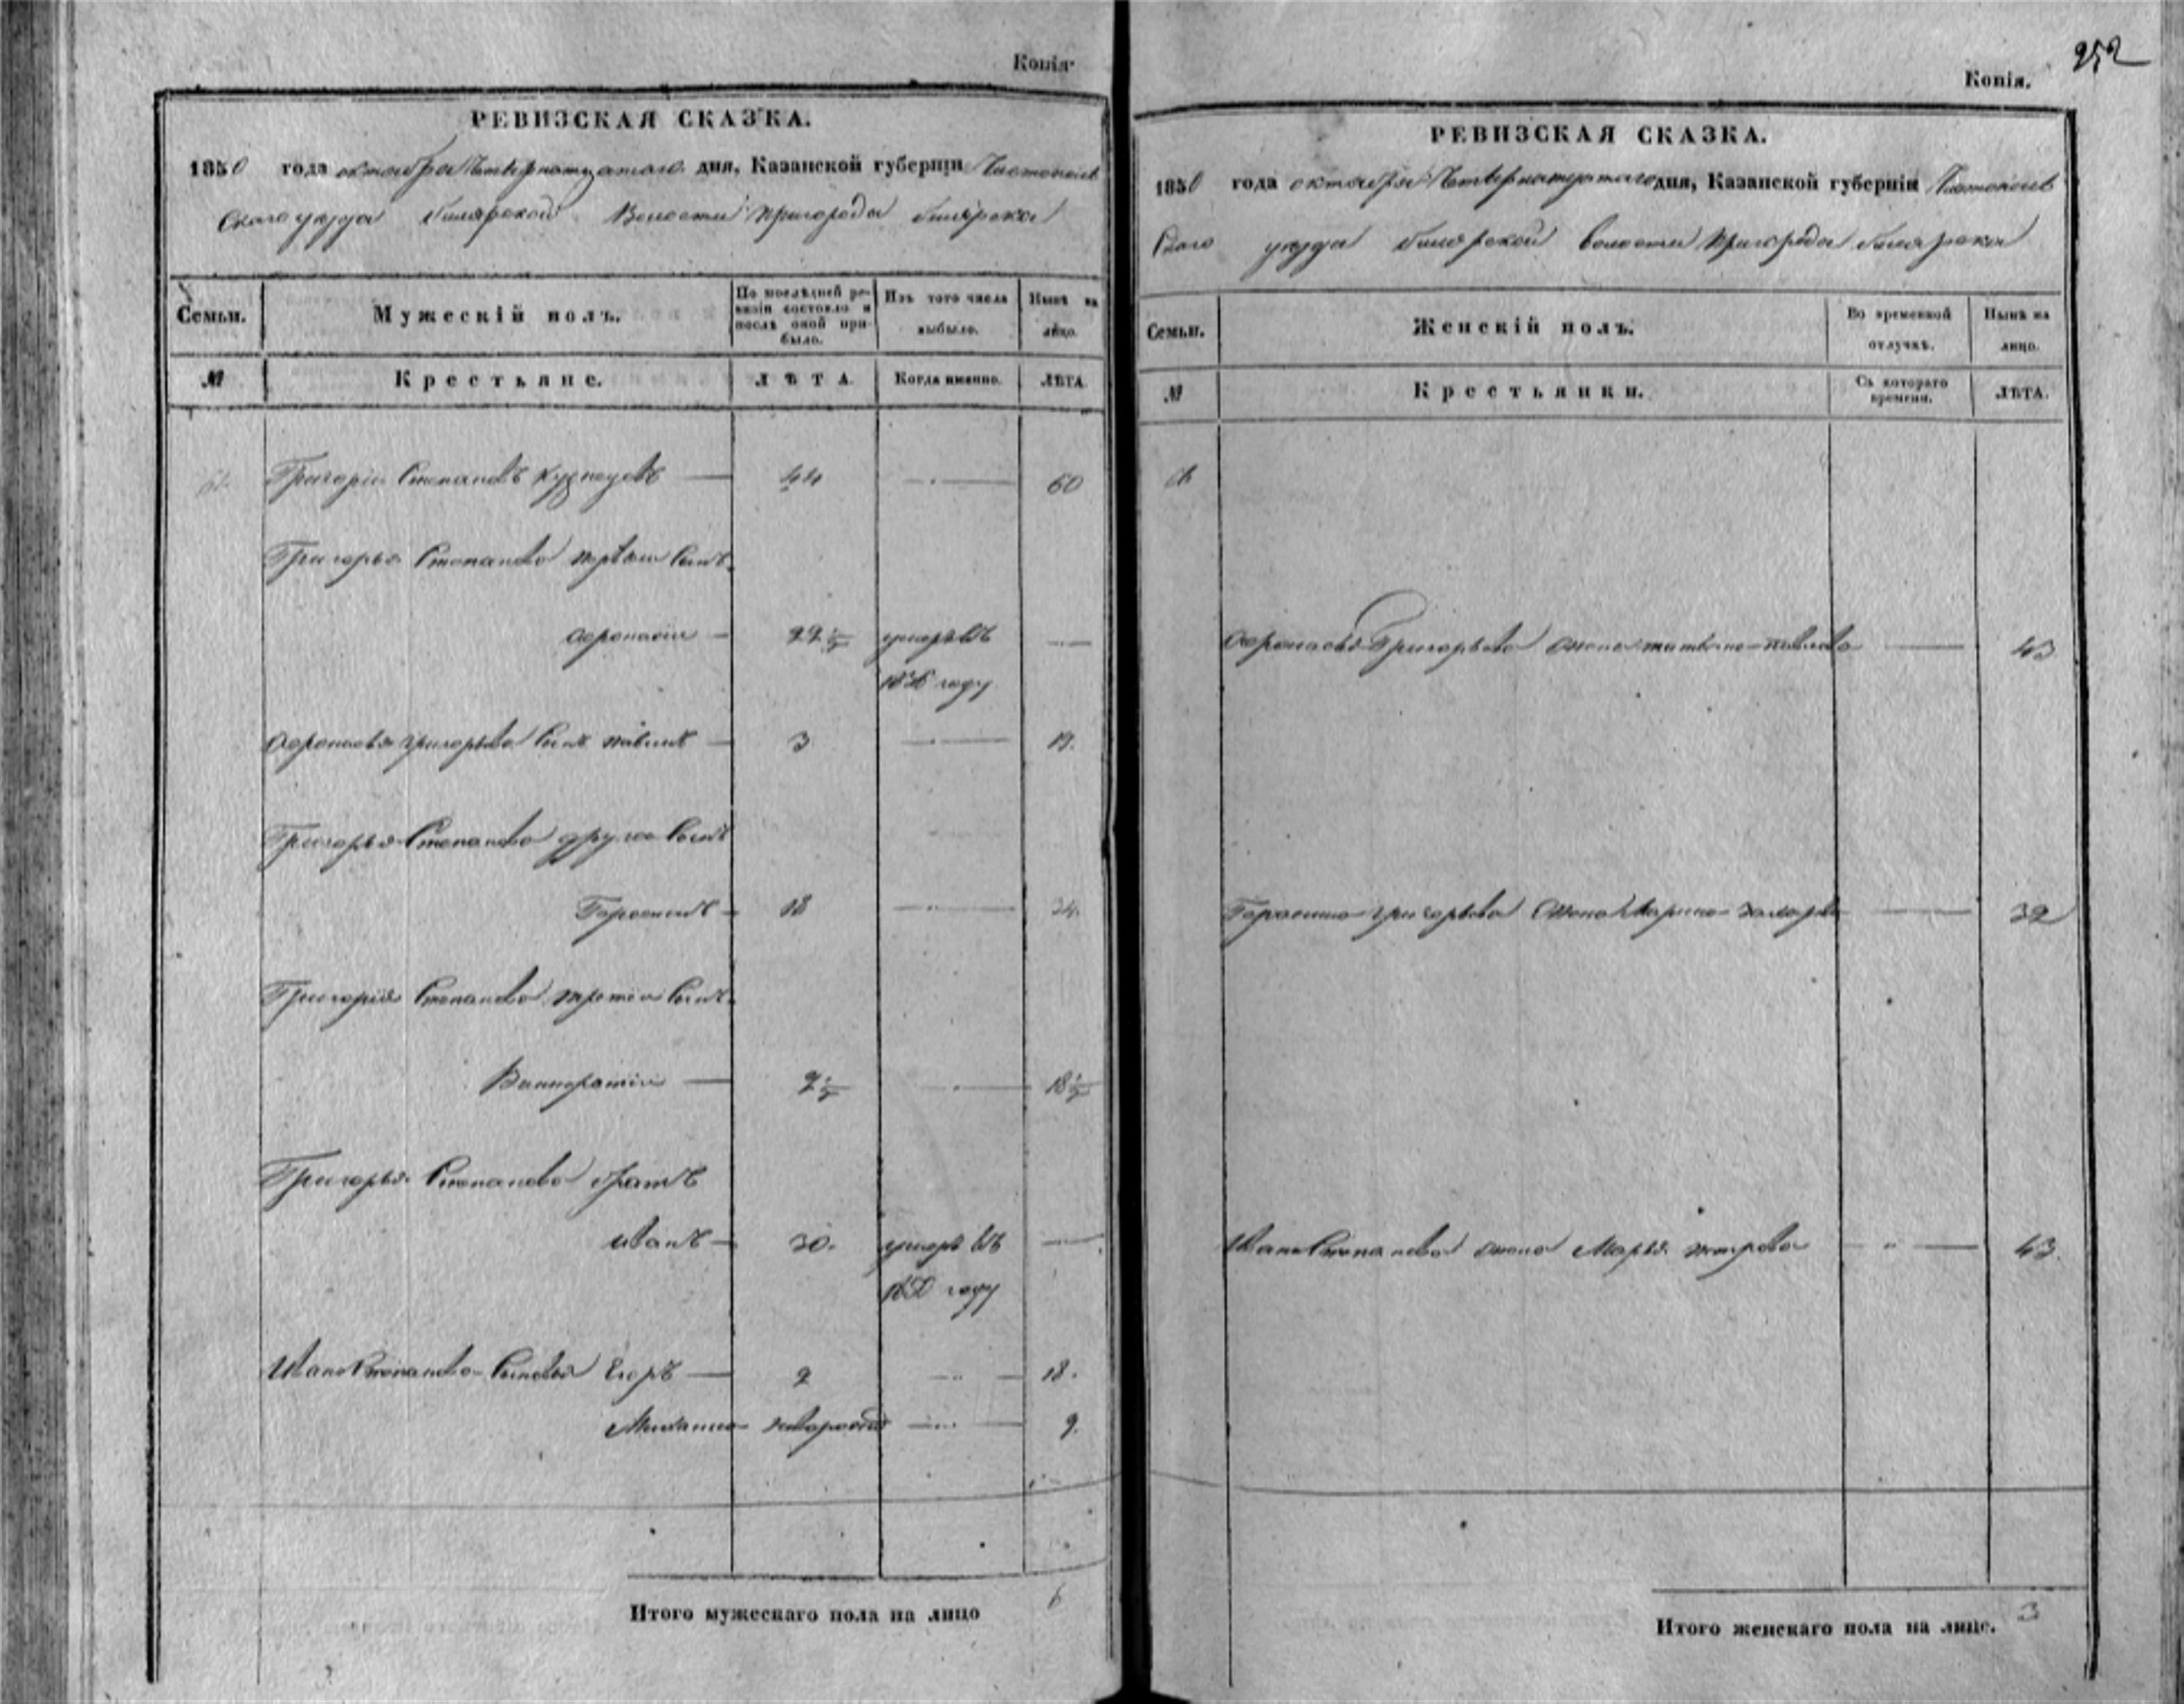 Копія
РЕВИЗСКАЯ СКАЗКА.
1850 года октября Четвертнатцатаго дня, Казанской губерніи Чистополь
скаго уезда билярской Волости пригорода билярска
Семьи.
Мужескій полъ.
По послѣдней ревизіи состояло и послѣ оной прибыло.
Изъ того числа выбыло.
Нынѣ на лицо.
№
Крестьяне.
ЛѢТА
Когда именно.
ЛѢТА
Григорій Степановъ Кузнецовъ — 44 — 60
Григорья Степанова первый сынъ
Афонасій — 22 1/2 умеръ въ —
году
Афонасья григорьева сынъ павелъ — 3 — 19.
Григорья Степанова другой сынъ
Герасимъ — 18 — 34.
Григорія Степанова третей сынъ
2 1/2 — 18 1/2
Григорья Степанова братъ
иванъ — 30. умеръ въ —
1850 году
Ивана Степанова сыновья Егоръ — 2 — 18.
Михаило — 9.
Итого мужескаго пола на лицо 6
252
Копія.
РЕВИЗСКАЯ СКАЗКА.
1850 года октября Четвертнатцатаго дня, Казанской губерніи Чистополь
скаго уезда билярской волости пригорода билярска
Семьи.
Женскій полъ.
Во временной отлучкѣ.
Нынѣ на лицо.
№
Крестьянки.
Съ котораго времени.
ЛѢТА.
Афонасья Григорьева жена татьяна павлова — 43
Герасима григорьева жена Марина захарова — 32
Ивана Степанова жена Марья петрова — 43.
Итого женскаго пола на лице. 3